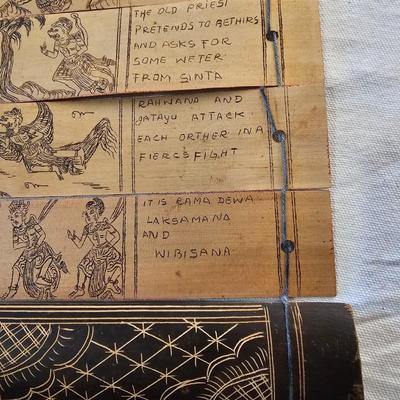 THE OLD PRIEST
PRETENDS TO BETHIRS
AND ASKS FOR
SOME WETER
FROM SINTA
RAHWANA AND
JATAYU ATTACK
EACH ORTHER IN A
FIERCE FIGHT
IT IS RAMA DEWA
LAKSAMANA
AND
WIBISANA